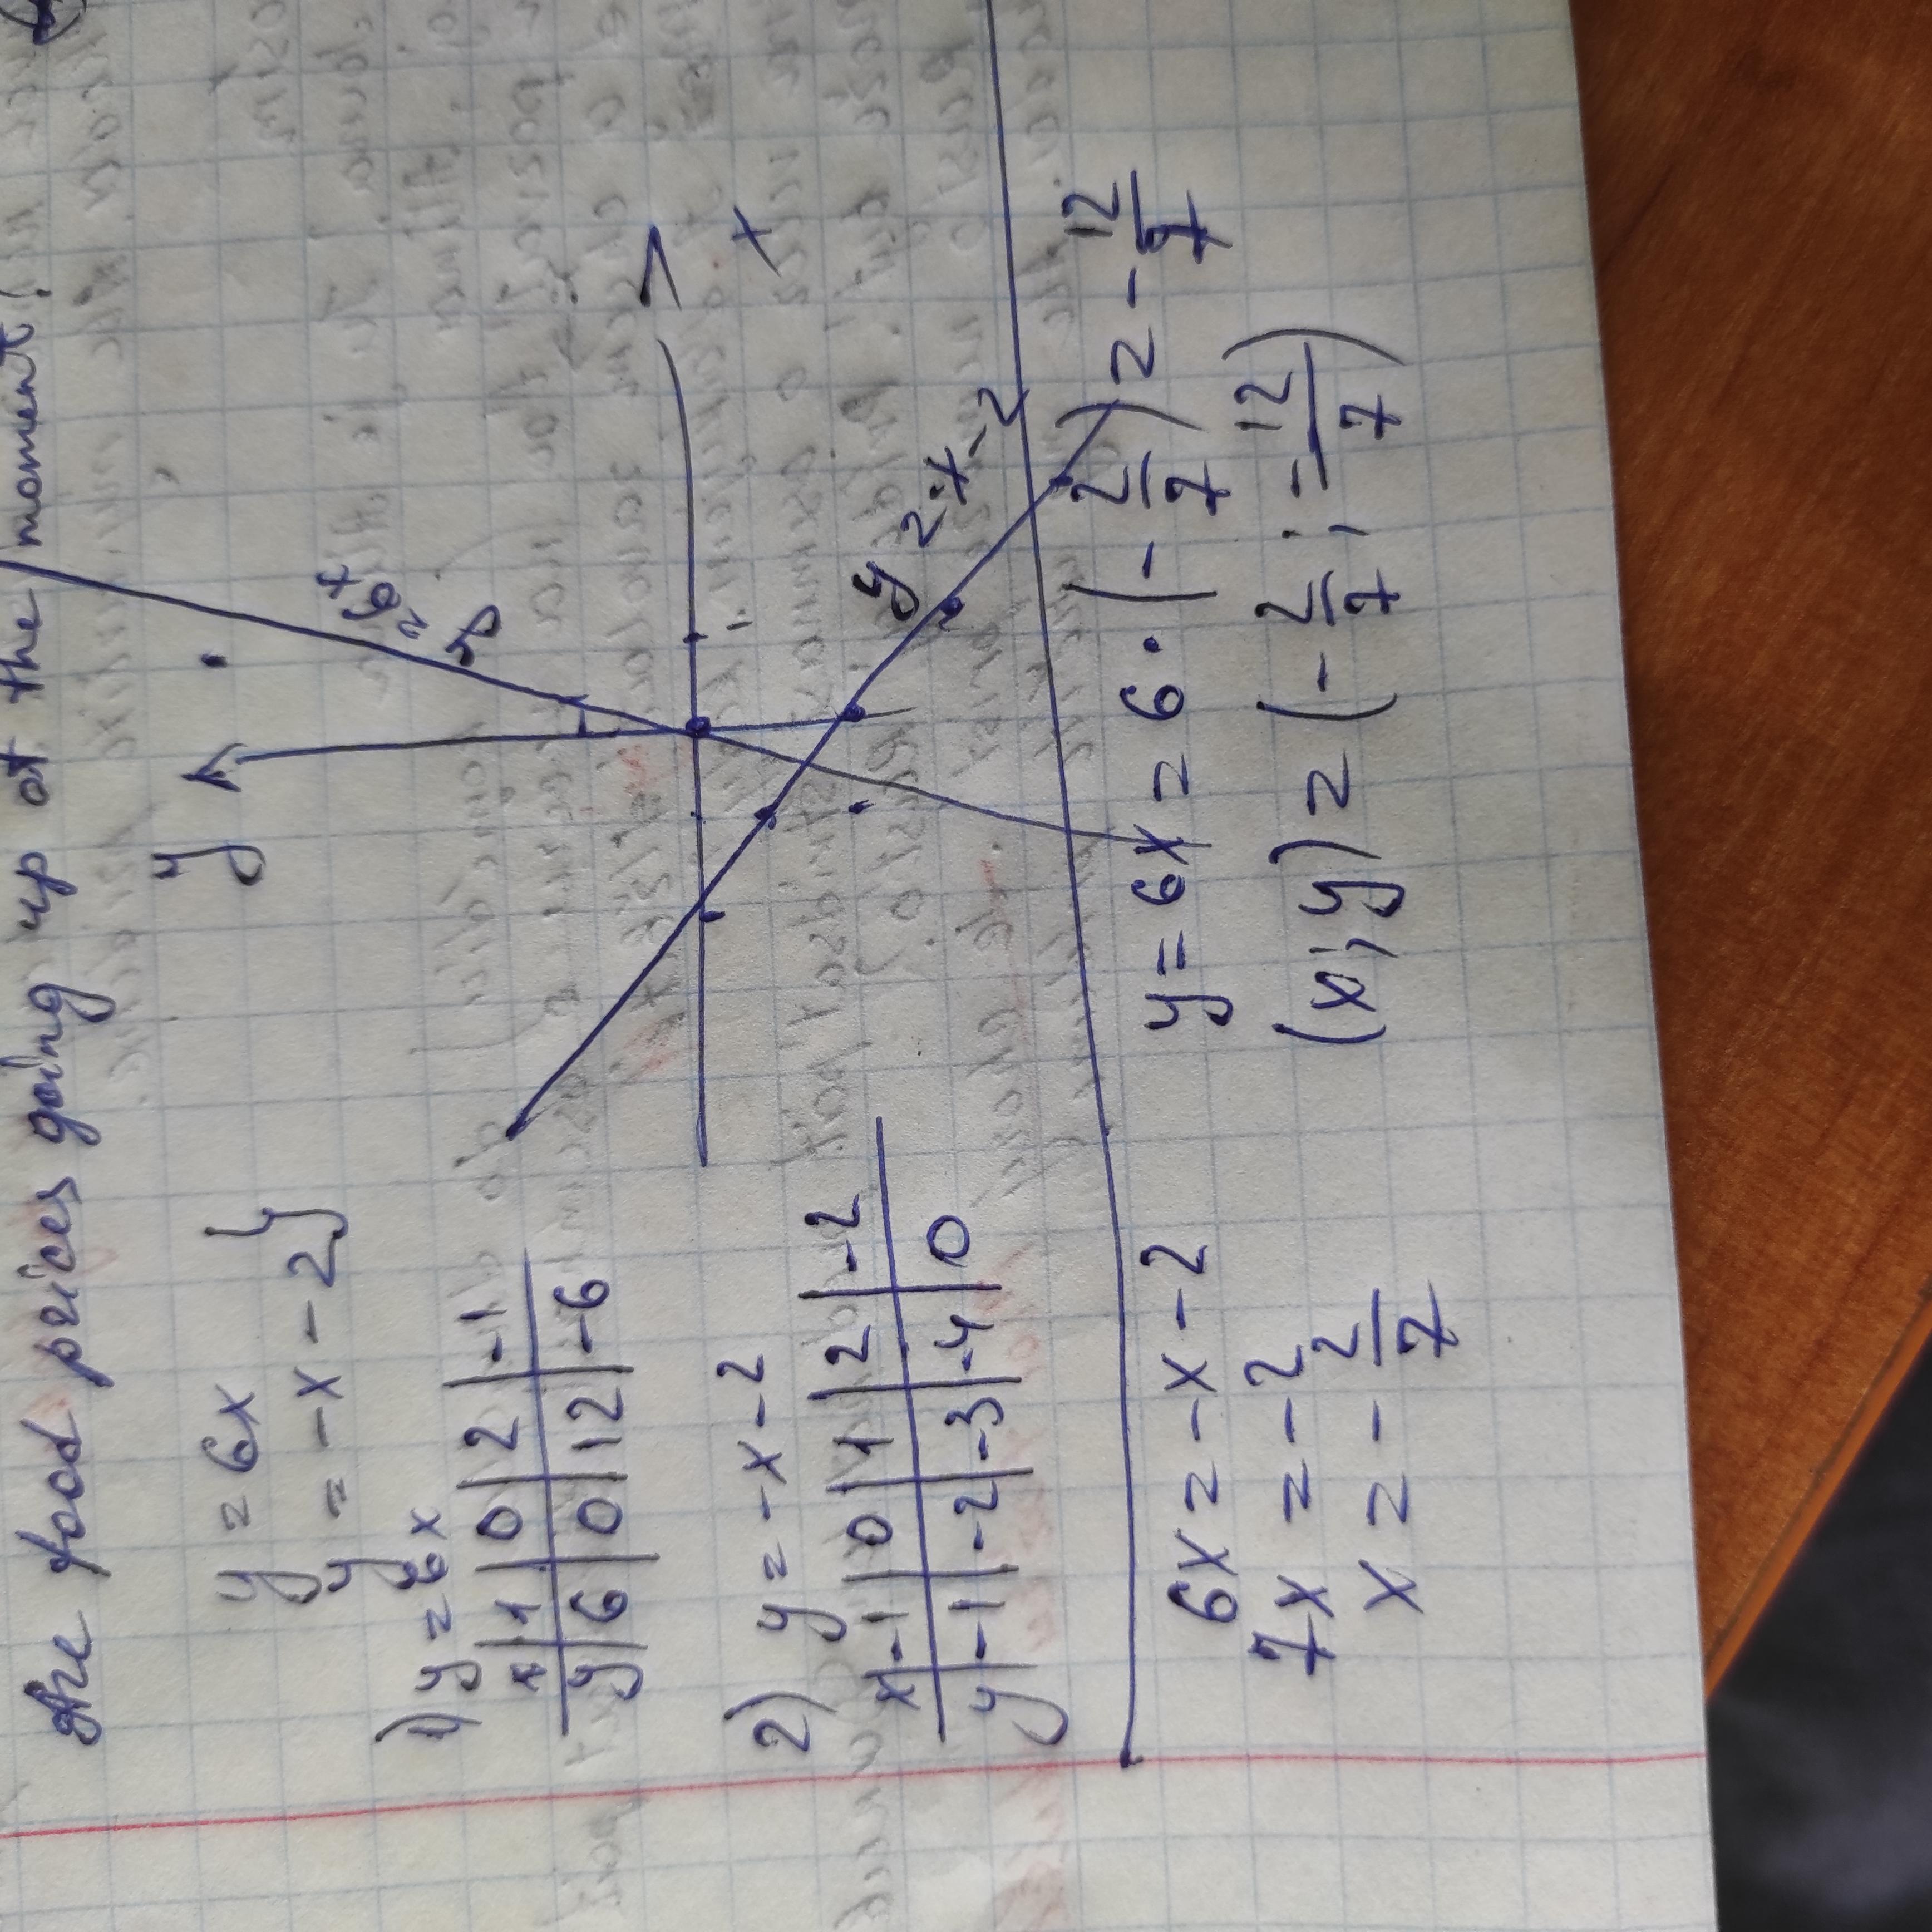 are food prices going up at the moment?
y = 6x }
y = -x - 2 }
1) y = 6x
x | 1 | 0 | 2 | -1
y | 6 | 0 | 12 | -6
2) y = -x - 2
x | -1 | 0 | 1 | 2 | -2
y | -1 | -2 | -3 | -4 | 0
y
y = 6x
x
1
y = -x - 2
6x = -x - 2
7x = -2
x = -2/7
y = 6x = 6 · (-2/7) = -12/7
(x; y) = (-2/7; -12/7)